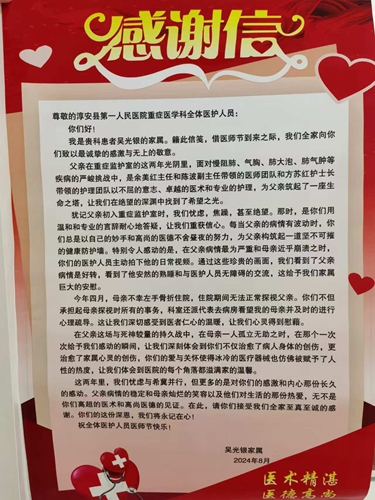 感谢信
尊敬的淳安县第一人民医院重症医学科全体医护人员：
你们好！
我是贵科患者吴光银的家属。藉此信笺，借医师节到来之际，我们全家向你
们致以最诚挚的感激与无上的敬意。
父亲在重症监护室的这两年光阴里，面对慢阻肺、气胸、肺大泡、肺气肿等
疾病的严峻挑战中，是余美红主任和陈波副主任带领的医师团队和方苏红护士长
带领的护理团队以不屈的意志、卓越的医术和专业的护理，为父亲筑起了一座生
命之塔，让我们在绝望的深渊中找到了希望之光。
犹记父亲初入重症监护室时，我们忧虑，焦躁，甚至绝望。那时，是你们用
温和和专业的言辞耐心地答疑，让我们重获信心。每当父亲的病情有波动时，你
们总是以自己的妙手和高尚的医德不舍昼夜的努力，为父亲构筑起一道坚不可摧
的健康防护墙。特别令人感动的是，在父亲病情最为严重和母亲近乎崩溃之时，
你们的医护人员主动拍下他的日常视频。通过这些珍贵的画面，我们看到了父亲
病情是好转，看到了他安然的熟睡和与医护人员无障碍的交流，这给予我们家属
巨大的安慰。
今年四月，母亲不幸左手骨折住院，住院期间无法正常探视父亲。你们不但
承担起母亲探视时所有的事务，科室还派代表去病房看望我的母亲并及时的进行
心理疏导。这让我们深切感受到医者仁心的温暖，让我们心灵得到慰籍。
在父亲这场与死神较量的持久战中，在母亲一人孤立无助之时，在那一个一
次次给予我们感动的瞬间，让我们深刻体会到你们不仅治愈了病人身体的创伤，更
治愈了家属心灵的创伤。你们的爱与关怀使得冰冷的医疗器械也仿佛被赋予了人
性的热度，让我们体会到医院的每个角落都溢满家的温馨。
这两年里，我们忧虑与希冀并行，但更多的是对你们的感激和内心那份长久
的感动。父亲病情的稳定和母亲灿烂的笑容以及他们对生活的那份热爱，无不是
你们高超的医术和高尚医德的见证。在此，请你们接受我们全家至真至诚的感
谢。你们的这份深恩，我们将永记在心！
祝全体医护人员医师节快乐！
吴光银家属
2024年8月
医术精湛
医德高尚